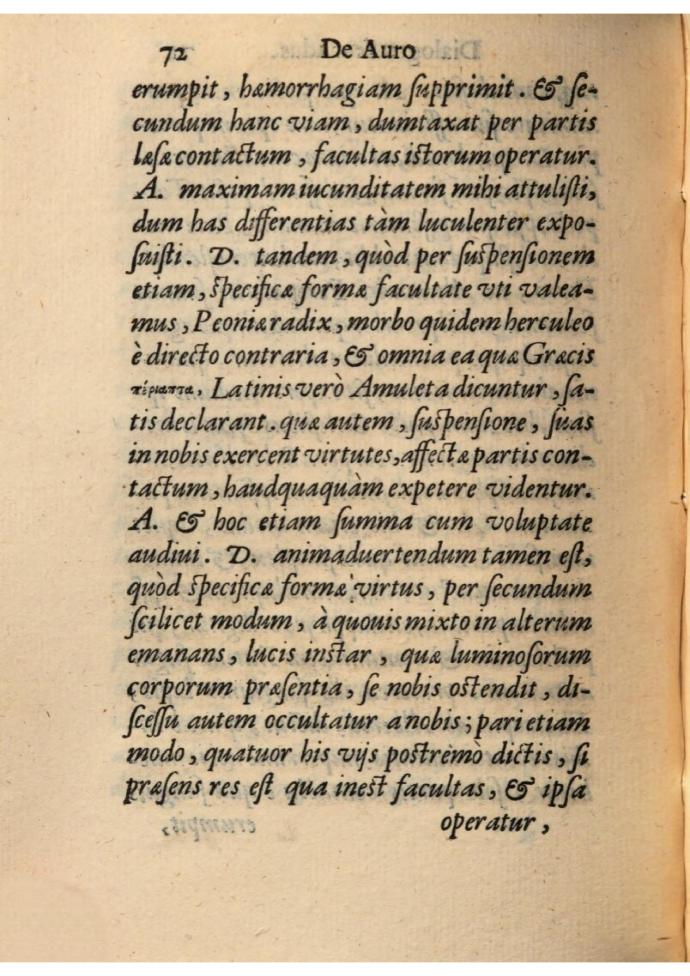 72 De Auro
erumpit, hæmorrhagiam ſupprimit. & ſe-
cundum hanc viam, dumtaxat per partis
læſæ contactum, facultas iſtorum operatur.
A. maximam iucunditatem mihi attuliſti,
dum has differentias tàm luculenter expo-
ſuiſti. D. tandem, quòd per ſuſpenſionem
etiam, ſpecificæ formæ facultate vti valea-
mus, Peoniæ radix, morbo quidem herculeo
è directo contraria, & omnia ea quæ Græcis
πέριαπτα, Latinis verò Amuleta dicuntur, ſa-
tis declarant. quæ autem, ſuſpenſione, ſuas
in nobis exercent virtutes, affectæ partis con-
tactum, haudquaquàm expetere videntur.
A. & hoc etiam ſumma cum voluptate
audiui. D. animaduertendum tamen eſt,
quòd ſpecificæ formæ virtus, per ſecundum
ſcilicet modum, à quouis mixto in alterum
emanans, lucis inſtar, quæ luminoſorum
corporum præſentia, ſe nobis oſtendit, di-
ſceſſu autem occultatur a nobis; pari etiam
modo, quatuor his vijs poſtremò dictis, ſi
præſens res eſt qua ineſt facultas, & ipſa
operatur,